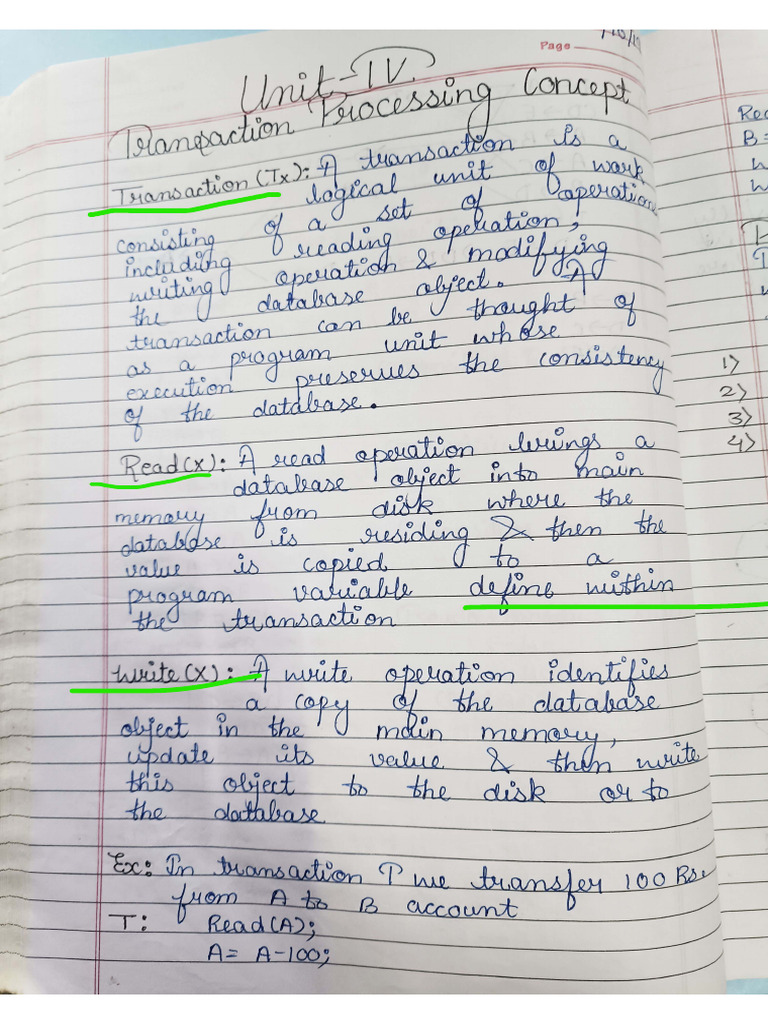 Page
Unit-IV.
Transaction Processing Concept
Transaction (Tx): A transaction is a
logical unit of work
consisting of a set of operation
including reading operation,
writing operation & modifying
the database object. A
transaction can be thought of
as a program unit whose
execution preserves the consistency
of the database.
Read(X): A read operation brings a
database object into main
memory from disk where the
database is residing & then the
value is copied to a
program variable define within
the transaction
Write(X): A write operation identifies
a copy of the database
object in the main memory,
update its value & then write
this object to the disk or to
the database
Ex: In transaction T we transfer 100 Rs.
from A to B account
T: Read(A);
A = A-100;
B =
1)
2)
3)
4)